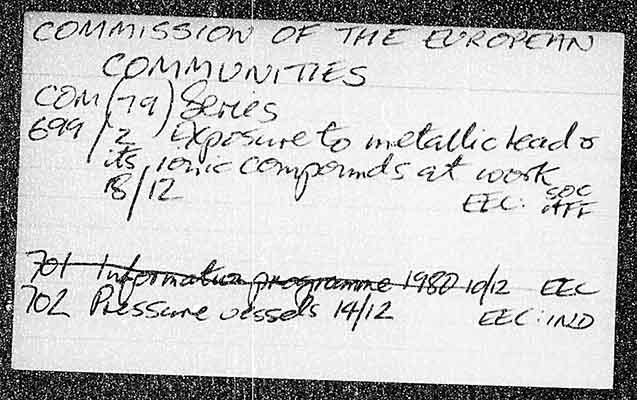 COMMISSION OF THE EUROPEAN
COMMUNITIES
COM (79) Series
699/2 Exposure to metallic lead &
its ionic compounds at work
18/12 EEC: SOC AFF
701 Information programme 1980 10/12 EEC
702 Pressure vessels 14/12 EEC: IND